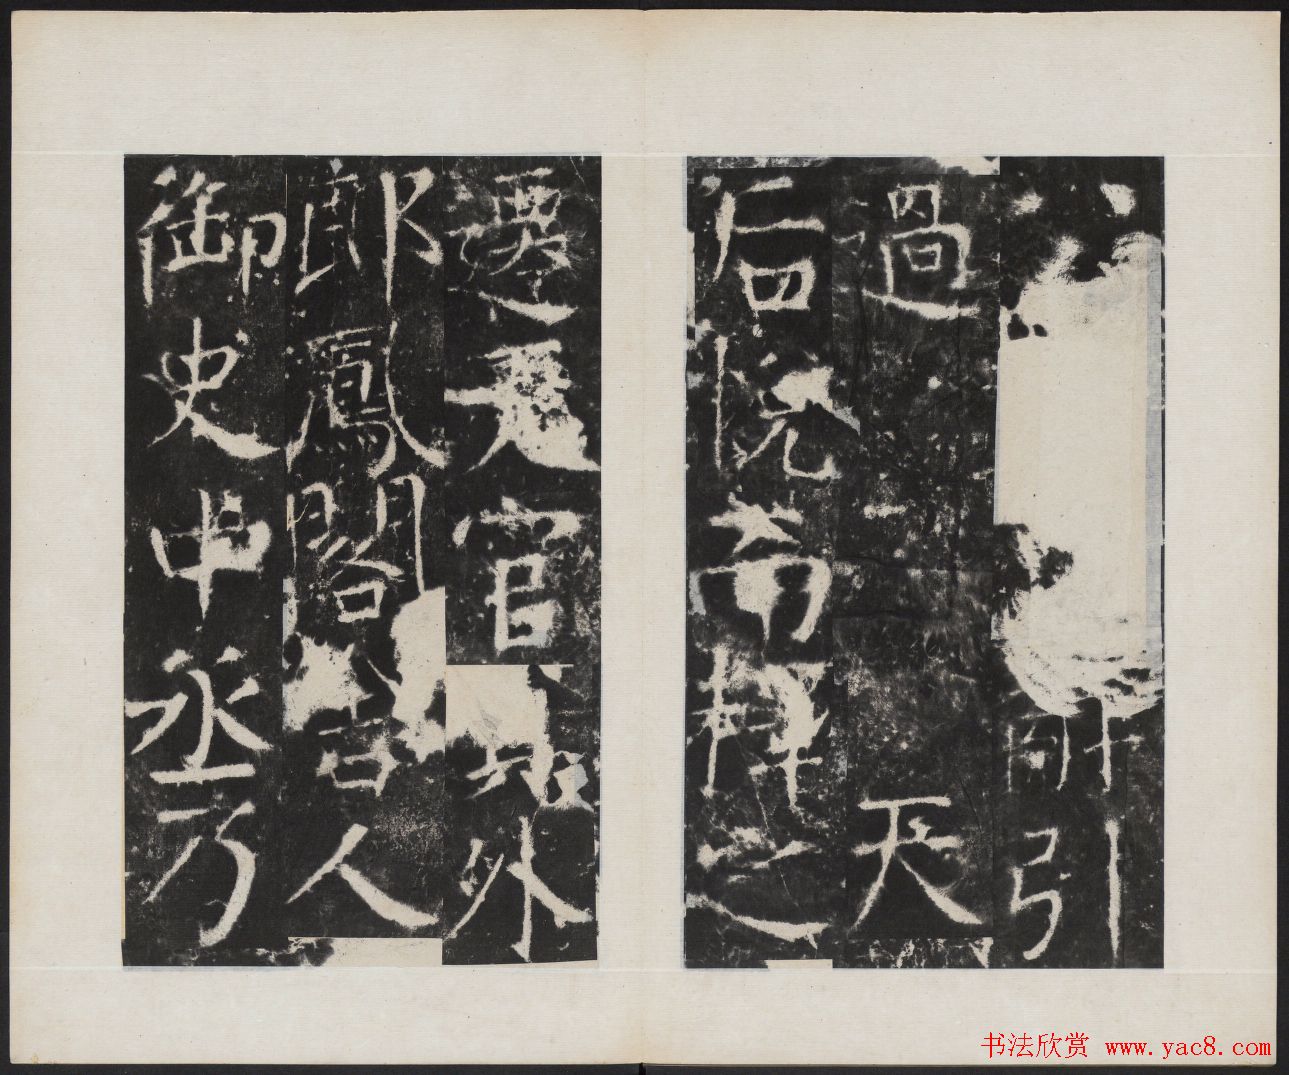 所引
過天
后悅而釋之
遷天官員外
郎鳳閣舍人
御史中丞乃
书法欣赏 www.yac8.com